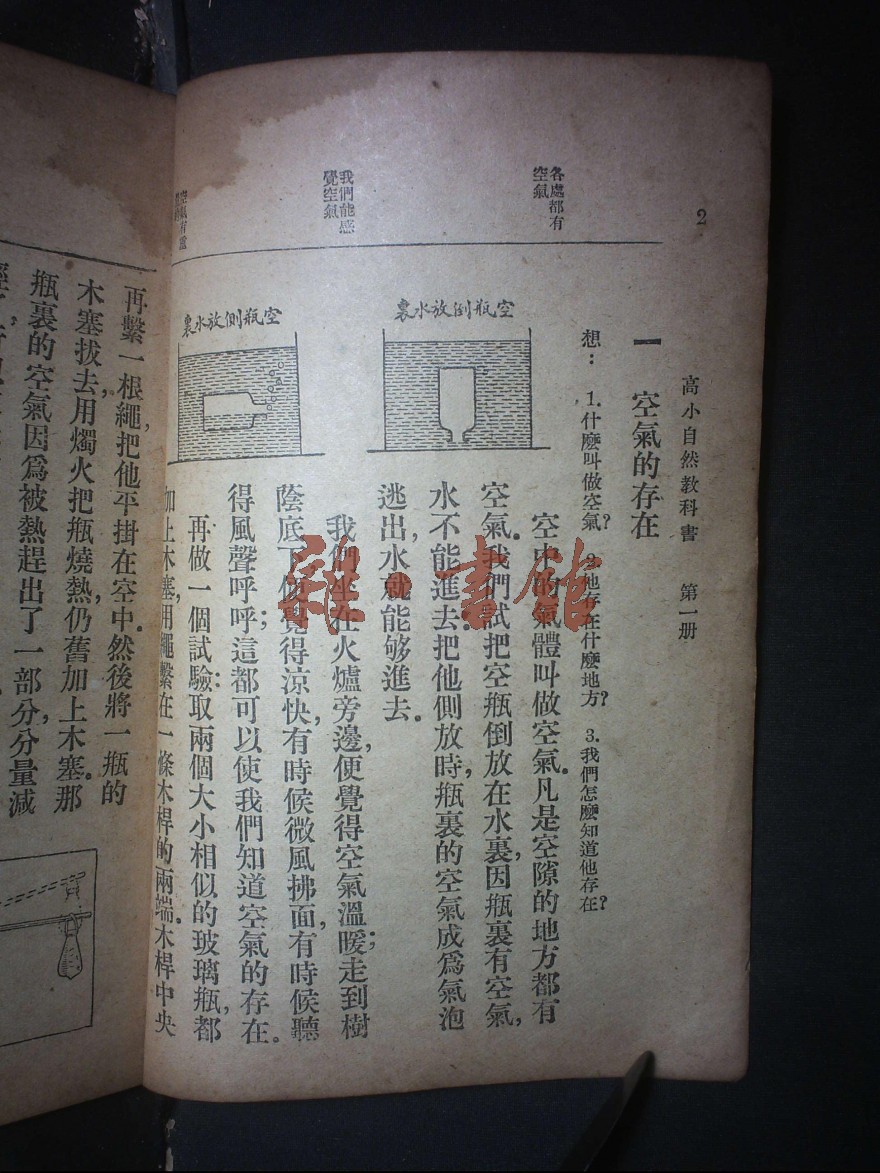 2
高小自然教科書 第一册
一 空氣的存在
想：1.什麽叫做空氣？2.他存在什麽地方？3.我們怎麽知道他存在？
各處都有
空氣
空中的氣體叫做空氣。凡是空隙的地方都有
空氣。我們試把空瓶倒放在水裏，因瓶裏有空氣，
水不能進去；把他側放時，瓶裏的空氣成爲氣泡
逃出，水就能够進去。
空瓶倒放水裏
空瓶側放水裏
我們能感
覺空氣
我們坐在火爐旁邊，便覺得空氣溫暖；走到樹
蔭底下便覺得凉快，有時候微風拂面，有時候聽
得風聲呼呼；這都可以使我們知道空氣的存在。
空氣有重
再做一個試驗：取兩個大小相似的玻璃瓶，都
加上木塞，用繩繫在一條木桿的兩端。木桿中央
再繫一根繩，把他平掛在空中。然後將一瓶的
木塞拔去，用燭火把瓶燒熱，仍舊加上木塞。那
瓶裏的空氣因爲被熱趕出了一部分，分量減
雜·書館